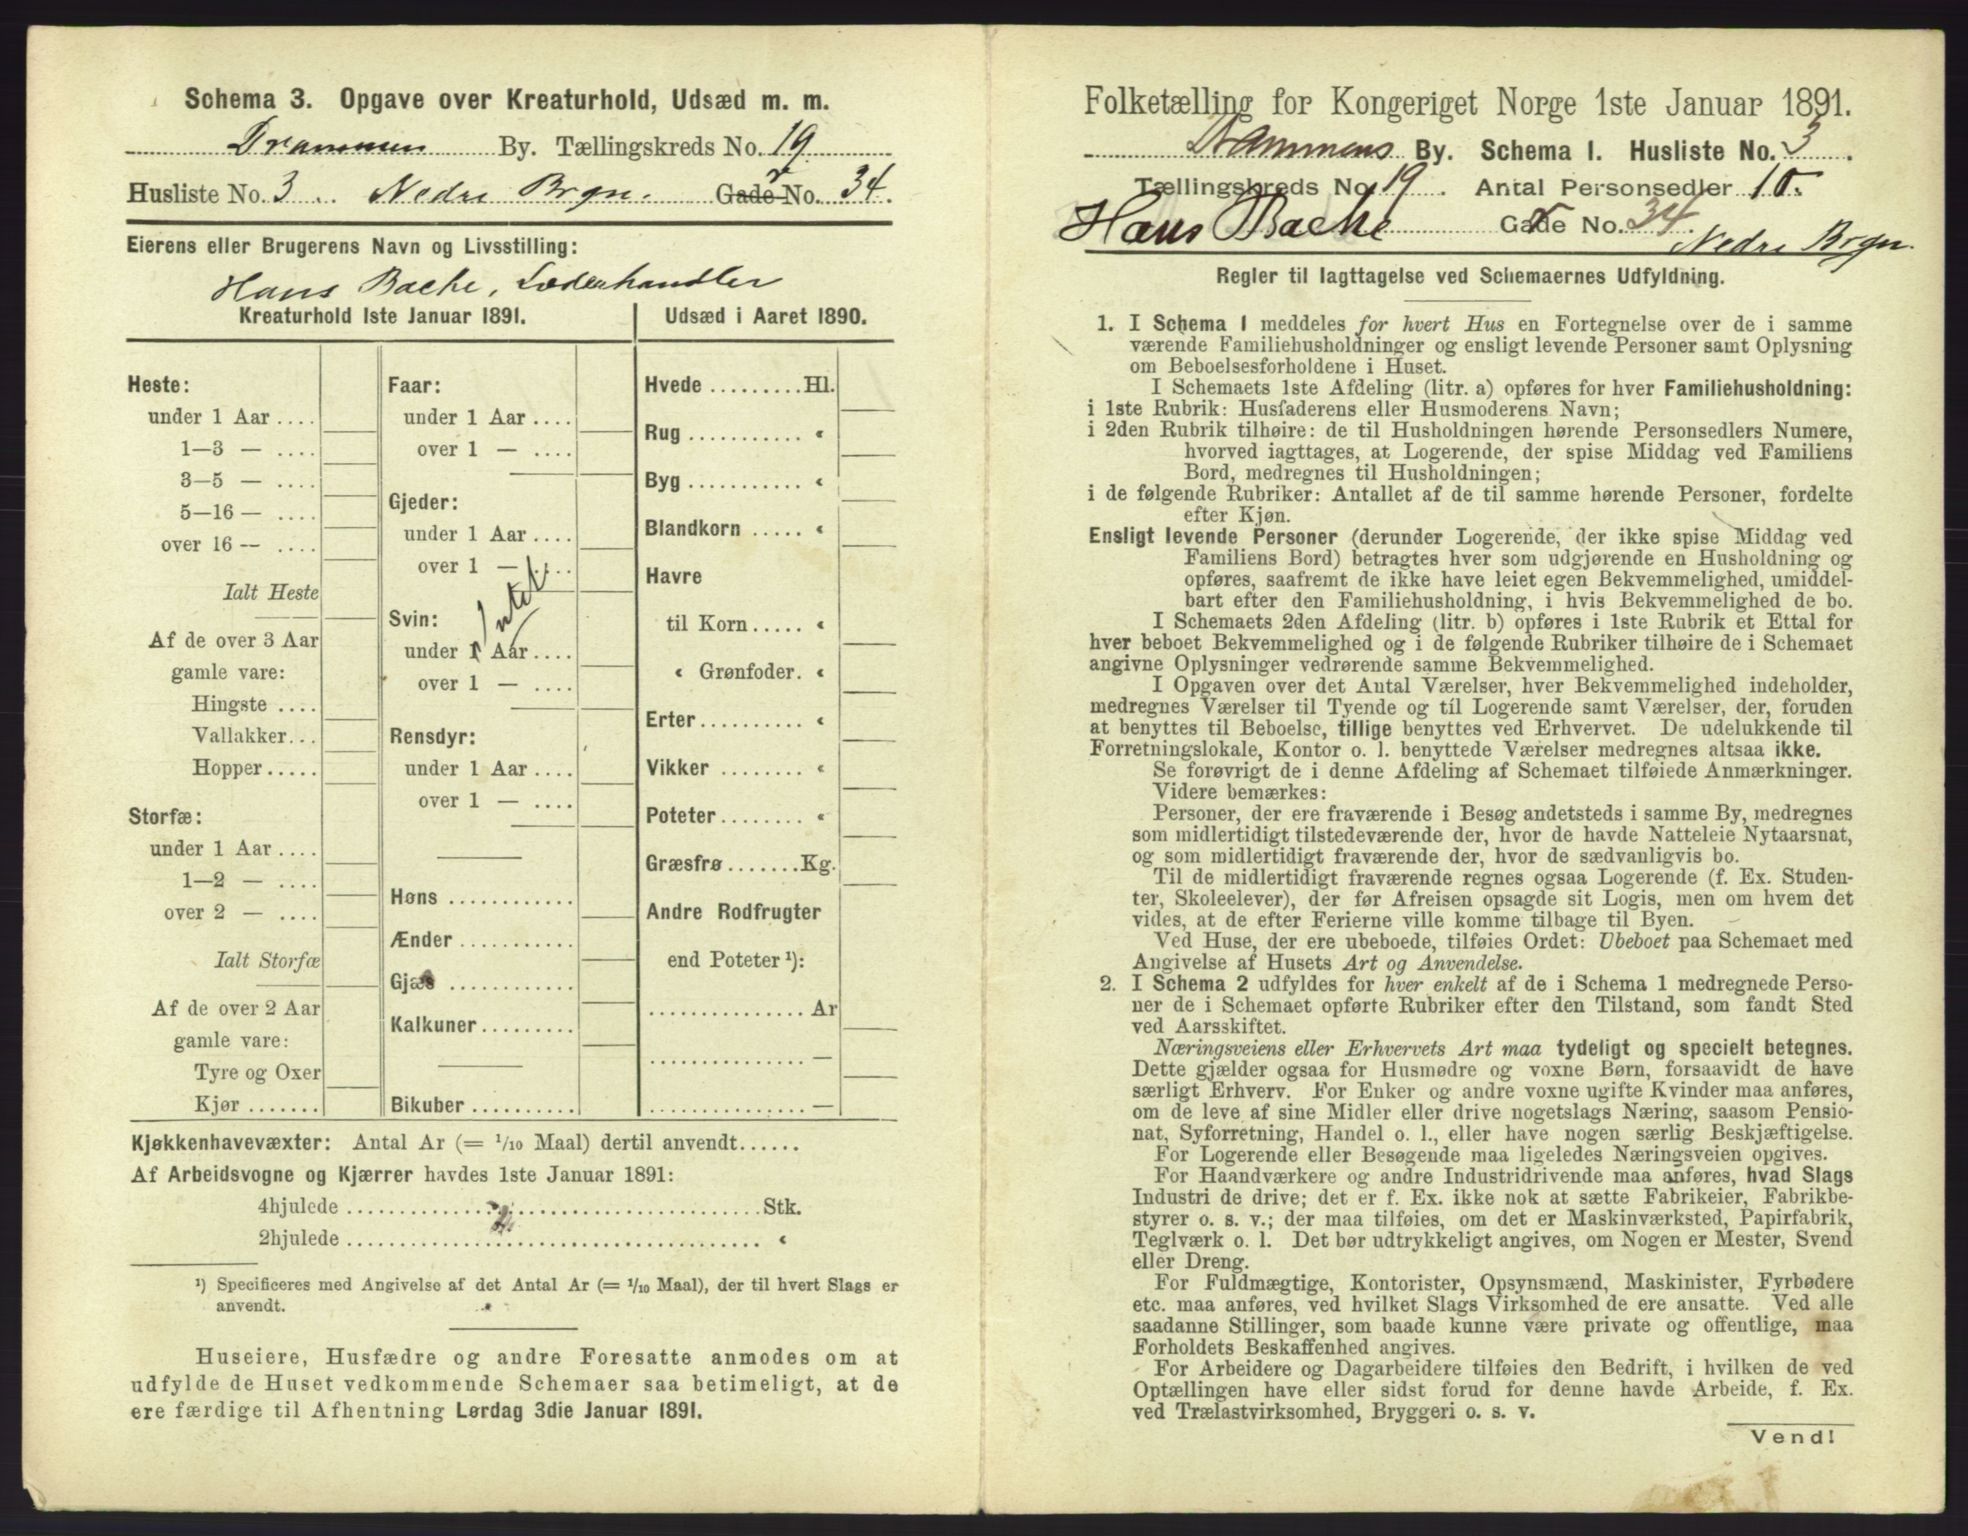 Schema 3. Opgave over Kreaturhold, Udsæd m. m.
Drammen By. Tællingskreds No. 19
Husliste No. 3 Nedre Brgn. Gade No. 34.
Eierens eller Brugerens Navn og Livsstilling:
Hans Bache, Læderhandler
Kreaturhold 1ste Januar 1891.
Heste:
under 1 Aar ....
1—3 — ....
3—5 — ....
5—16 — ....
over 16 — ....
Ialt Heste
Af de over 3 Aar
gamle vare:
Hingste ....
Vallakker...
Hopper.....
Storfæ:
under 1 Aar ....
1—2 — ....
over 2 — ....
Ialt Storfæ
Af de over 2 Aar
gamle vare:
Tyre og Oxer
Kjør .......
Faar:
under 1 Aar ....
over 1 — ....
Gjeder:
under 1 Aar ....
over 1 — ....
Intet
Svin:
under 1 Aar ....
over 1 — ....
Rensdyr:
under 1 Aar ....
over 1 — ....
Høns ...........
Ænder ..........
Gjæs ...........
Kalkuner........
Bikuber .........
Udsæd i Aaret 1890.
Hvede .........Hl.
Rug .......... «
Byg .......... «
Blandkorn ..... «
Havre
til Korn ..... «
« Grønfoder. «
Erter ......... «
Vikker ........ «
Poteter ........ «
Græsfrø .......Kg.
Andre Rodfrugter
end Poteter ¹):
............... Ar
............... —
............... —
Kjøkkenhavevæxter: Antal Ar (= 1/10 Maal) dertil anvendt......
Af Arbeidsvogne og Kjærrer havdes 1ste Januar 1891:
4hjulede ........................................Stk.
2hjulede ........................................ «
¹) Specificeres med Angivelse af det Antal Ar (= 1/10 Maal), der til hvert Slags er
anvendt.
Huseiere, Husfædre og andre Foresatte anmodes om at
udfylde de Huset vedkommende Schemaer saa betimeligt, at de
ere færdige til Afhentning Lørdag 3die Januar 1891.
Folketælling for Kongeriget Norge 1ste Januar 1891.
Drammens By. Schema 1. Husliste No. 3.
Tællingskreds No. 19. Antal Personsedler 10.
Hans Bache Gade No. 34.
Nedre Brgn.
Regler til Iagttagelse ved Schemaernes Udfyldning.
1. I Schema 1 meddeles for hvert Hus en Fortegnelse over de i samme
værende Familiehusholdninger og ensligt levende Personer samt Oplysning
om Beboelsesforholdene i Huset.
I Schemaets 1ste Afdeling (litr. a) opføres for hver Familiehusholdning:
i 1ste Rubrik: Husfaderens eller Husmoderens Navn;
i 2den Rubrik tilhøire: de til Husholdningen hørende Personsedlers Numere,
hvorved iagttages, at Logerende, der spise Middag ved Familiens
Bord, medregnes til Husholdningen;
i de følgende Rubriker: Antallet af de til samme hørende Personer, fordelte
efter Kjøn.
Ensligt levende Personer (derunder Logerende, der ikke spise Middag ved
Familiens Bord) betragtes hver som udgjørende en Husholdning og
opføres, saafremt de ikke have leiet egen Bekvemmelighed, umiddel-
bart efter den Familiehusholdning, i hvis Bekvemmelighed de bo.
I Schemaets 2den Afdeling (litr. b) opføres i 1ste Rubrik et Ettal for
hver beboet Bekvemmelighed og i de følgende Rubriker tilhøire de i Schemaet
angivne Oplysninger vedrørende samme Bekvemmelighed.
I Opgaven over det Antal Værelser, hver Bekvemmelighed indeholder,
medregnes Værelser til Tyende og til Logerende samt Værelser, der, foruden
at benyttes til Beboelse, tillige benyttes ved Erhvervet. De udelukkende til
Forretningslokale, Kontor o. l. benyttede Værelser medregnes altsaa ikke.
Se forøvrigt de i denne Afdeling af Schemaet tilføiede Anmærkninger.
Videre bemærkes:
Personer, der ere fraværende i Besøg andetsteds i samme By, medregnes
som midlertidigt tilstedeværende der, hvor de havde Natteleie Nytaarsnat,
og som midlertidigt fraværende der, hvor de sædvanligvis bo.
Til de midlertidigt fraværende regnes ogsaa Logerende (f. Ex. Studen-
ter, Skoleelever), der før Afreisen opsagde sit Logis, men om hvem det
vides, at de efter Ferierne ville komme tilbage til Byen.
Ved Huse, der ere ubeboede, tilføies Ordet: Ubeboet paa Schemaet med
Angivelse af Husets Art og Anvendelse.
2. I Schema 2 udfyldes for hver enkelt af de i Schema 1 medregnede Perso-
ner de i Schemaet opførte Rubriker efter den Tilstand, som fandt Sted
ved Aarsskiftet.
Næringsveiens eller Erhvervets Art maa tydeligt og specielt betegnes.
Dette gjælder ogsaa for Husmødre og voxne Børn, forsaavidt de have
særligt Erhverv. For Enker og andre voxne ugifte Kvinder maa anføres,
om de leve af sine Midler eller drive nogetslags Næring, saasom Pensio-
nat, Syforretning, Handel o. l., eller have nogen særlig Beskjæftigelse.
For Logerende eller Besøgende maa ligeledes Næringsveien opgives.
For Haandværkere og andre Industridrivende maa anføres, hvad Slags
Industri de drive; det er f. Ex. ikke nok at sætte Fabrikeier, Fabrikbe-
styrer o. s. v.; der maa tilføies, om det er Maskinværksted, Papirfabrik,
Teglværk o. l. Det bør udtrykkeligt angives, om Nogen er Mester, Svend
eller Dreng.
For Fuldmægtige, Kontorister, Opsynsmænd, Maskinister, Fyrbødere
etc. maa anføres, ved hvilket Slags Virksomhed de ere ansatte. Ved alle
saadanne Stillinger, som baade kunne være private og offentlige, maa
Forholdets Beskaffenhed angives.
For Arbeidere og Dagarbeidere tilføies den Bedrift, i hvilken de ved
Optællingen have eller sidst forud for denne havde Arbeide, f. Ex.
ved Trælastvirksomhed, Bryggeri o. s. v.
Vend!